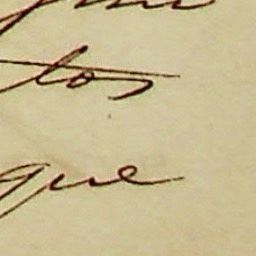 tos
que